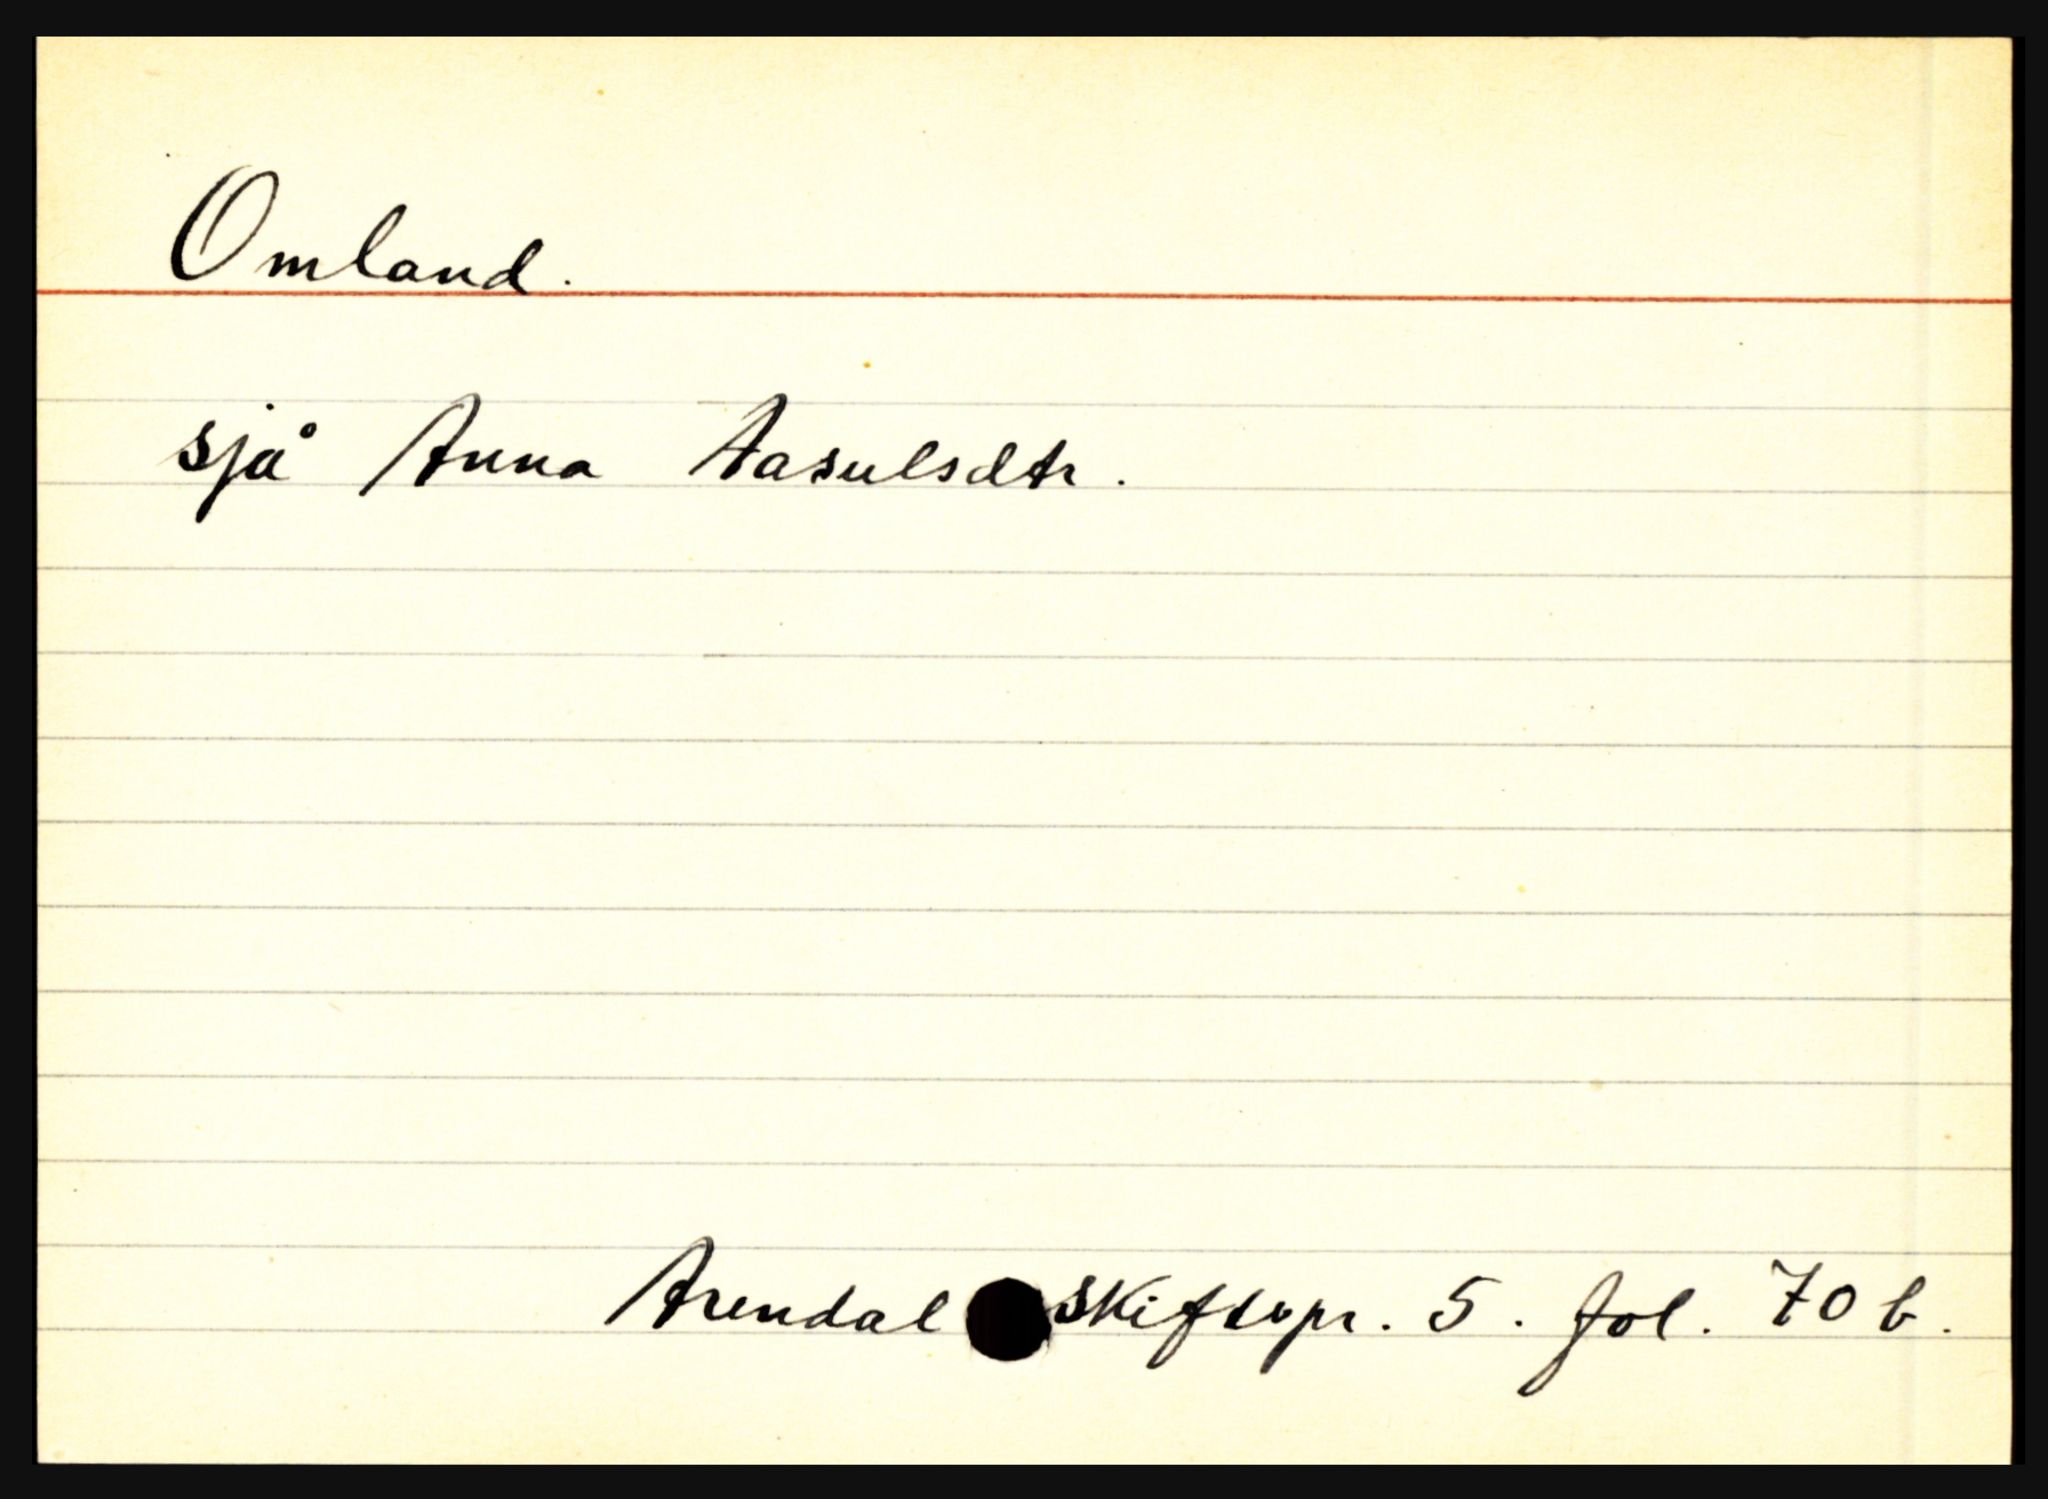 Omland.
sjå Anna Aasulsdtr.
Arendal skiftspr. 5. fol. 70 b.